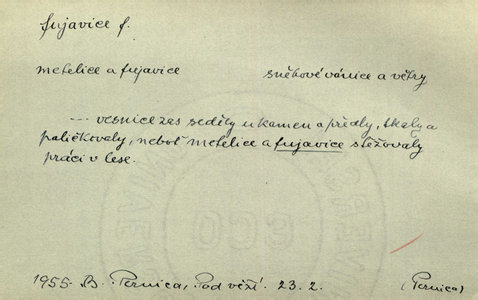 fujavice f.
metelice a fujavice sněhové vánice a větry
--- vesnice zas seděly u kamen a předly, tkaly a
paličkovaly, neboť metelice a fujavice stěžovaly
práci v lese.
1955. B. Pernica, Pod věží. 23. 2. (Pernica)